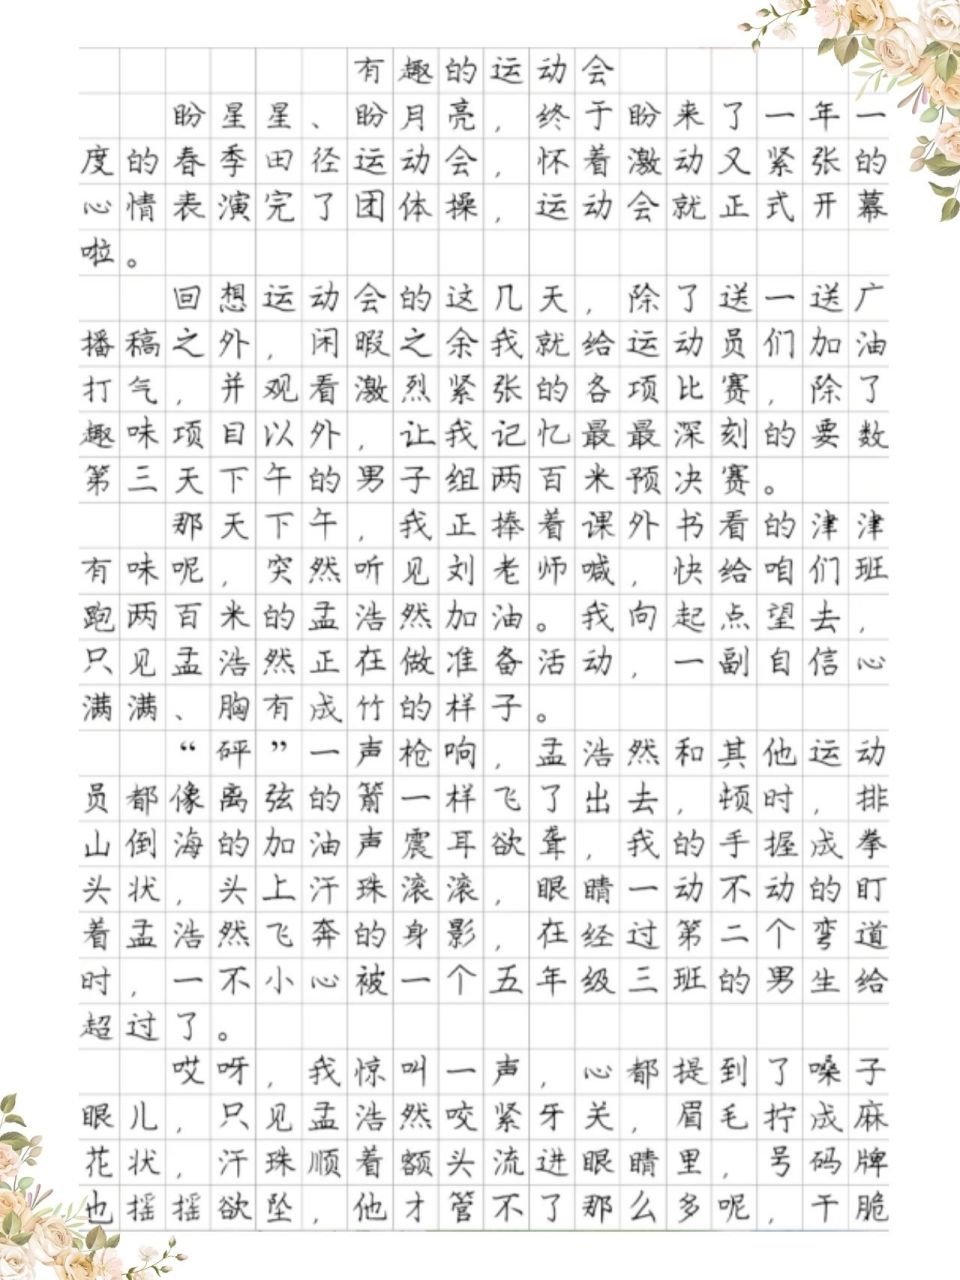 有趣的运动会
盼星星、盼月亮，终于盼来了一年一
度的春季田径运动会，怀着激动又紧张的
心情表演完了团体操，运动会就正式开幕
啦。
回想运动会的这几天，除了送一送广
播稿之外，闲暇之余我就给运动员们加油
打气，并观看激烈紧张的各项比赛，除了
趣味项目以外，让我记忆最最深刻的要数
第三天下午的男子组两百米预决赛。
那天下午，我正捧着课外书看的津津
有味呢，突然听见刘老师喊，快给咱们班
跑两百米的孟浩然加油。我向起点望去，
只见孟浩然正在做准备活动，一副自信心
满满、胸有成竹的样子。
“砰”一声枪响，孟浩然和其他运动
员都像离弦的箭一样飞了出去，顿时，排
山倒海的加油声震耳欲聋，我的手握成拳
头状，头上汗珠滚滚，眼睛一动不动的盯
着孟浩然飞奔的身影，在经过第二个弯道
时，一不小心被一个五年级三班的男生给
超过了。
哎呀，我惊叫一声，心都提到了嗓子
眼儿，只见孟浩然咬紧牙关，眉毛拧成麻
花状，汗珠顺着额头流进眼睛里，号码牌
也摇摇欲坠，他才管不了那么多呢，干脆